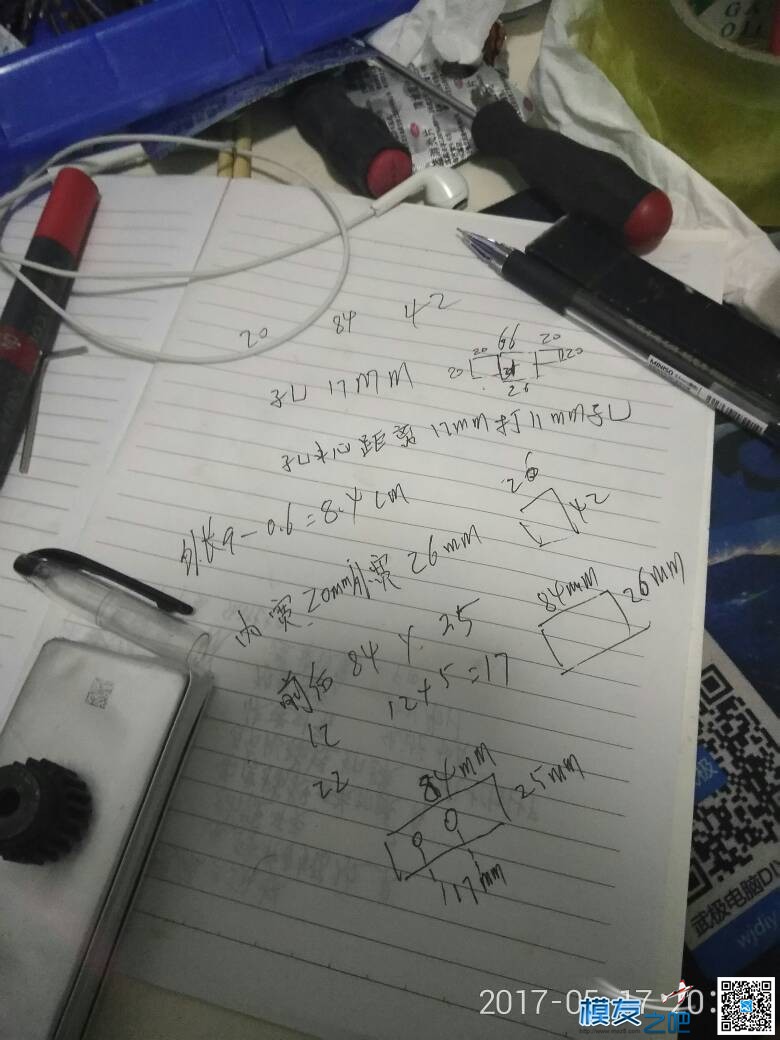 20 84 42
孔 17mm
20 66 20
20 20
26
孔中心距离 17mm 打 11mm 孔
外长 9-0.6=8.4cm
26
42
内宽 20mm 外宽 26mm
84mm 26mm
前后 84 × 25
12 12+5=17
22
84mm 25mm
17mm
MINISO
武极电脑DI
wjdiy
2017-05-17 20:
模友之吧